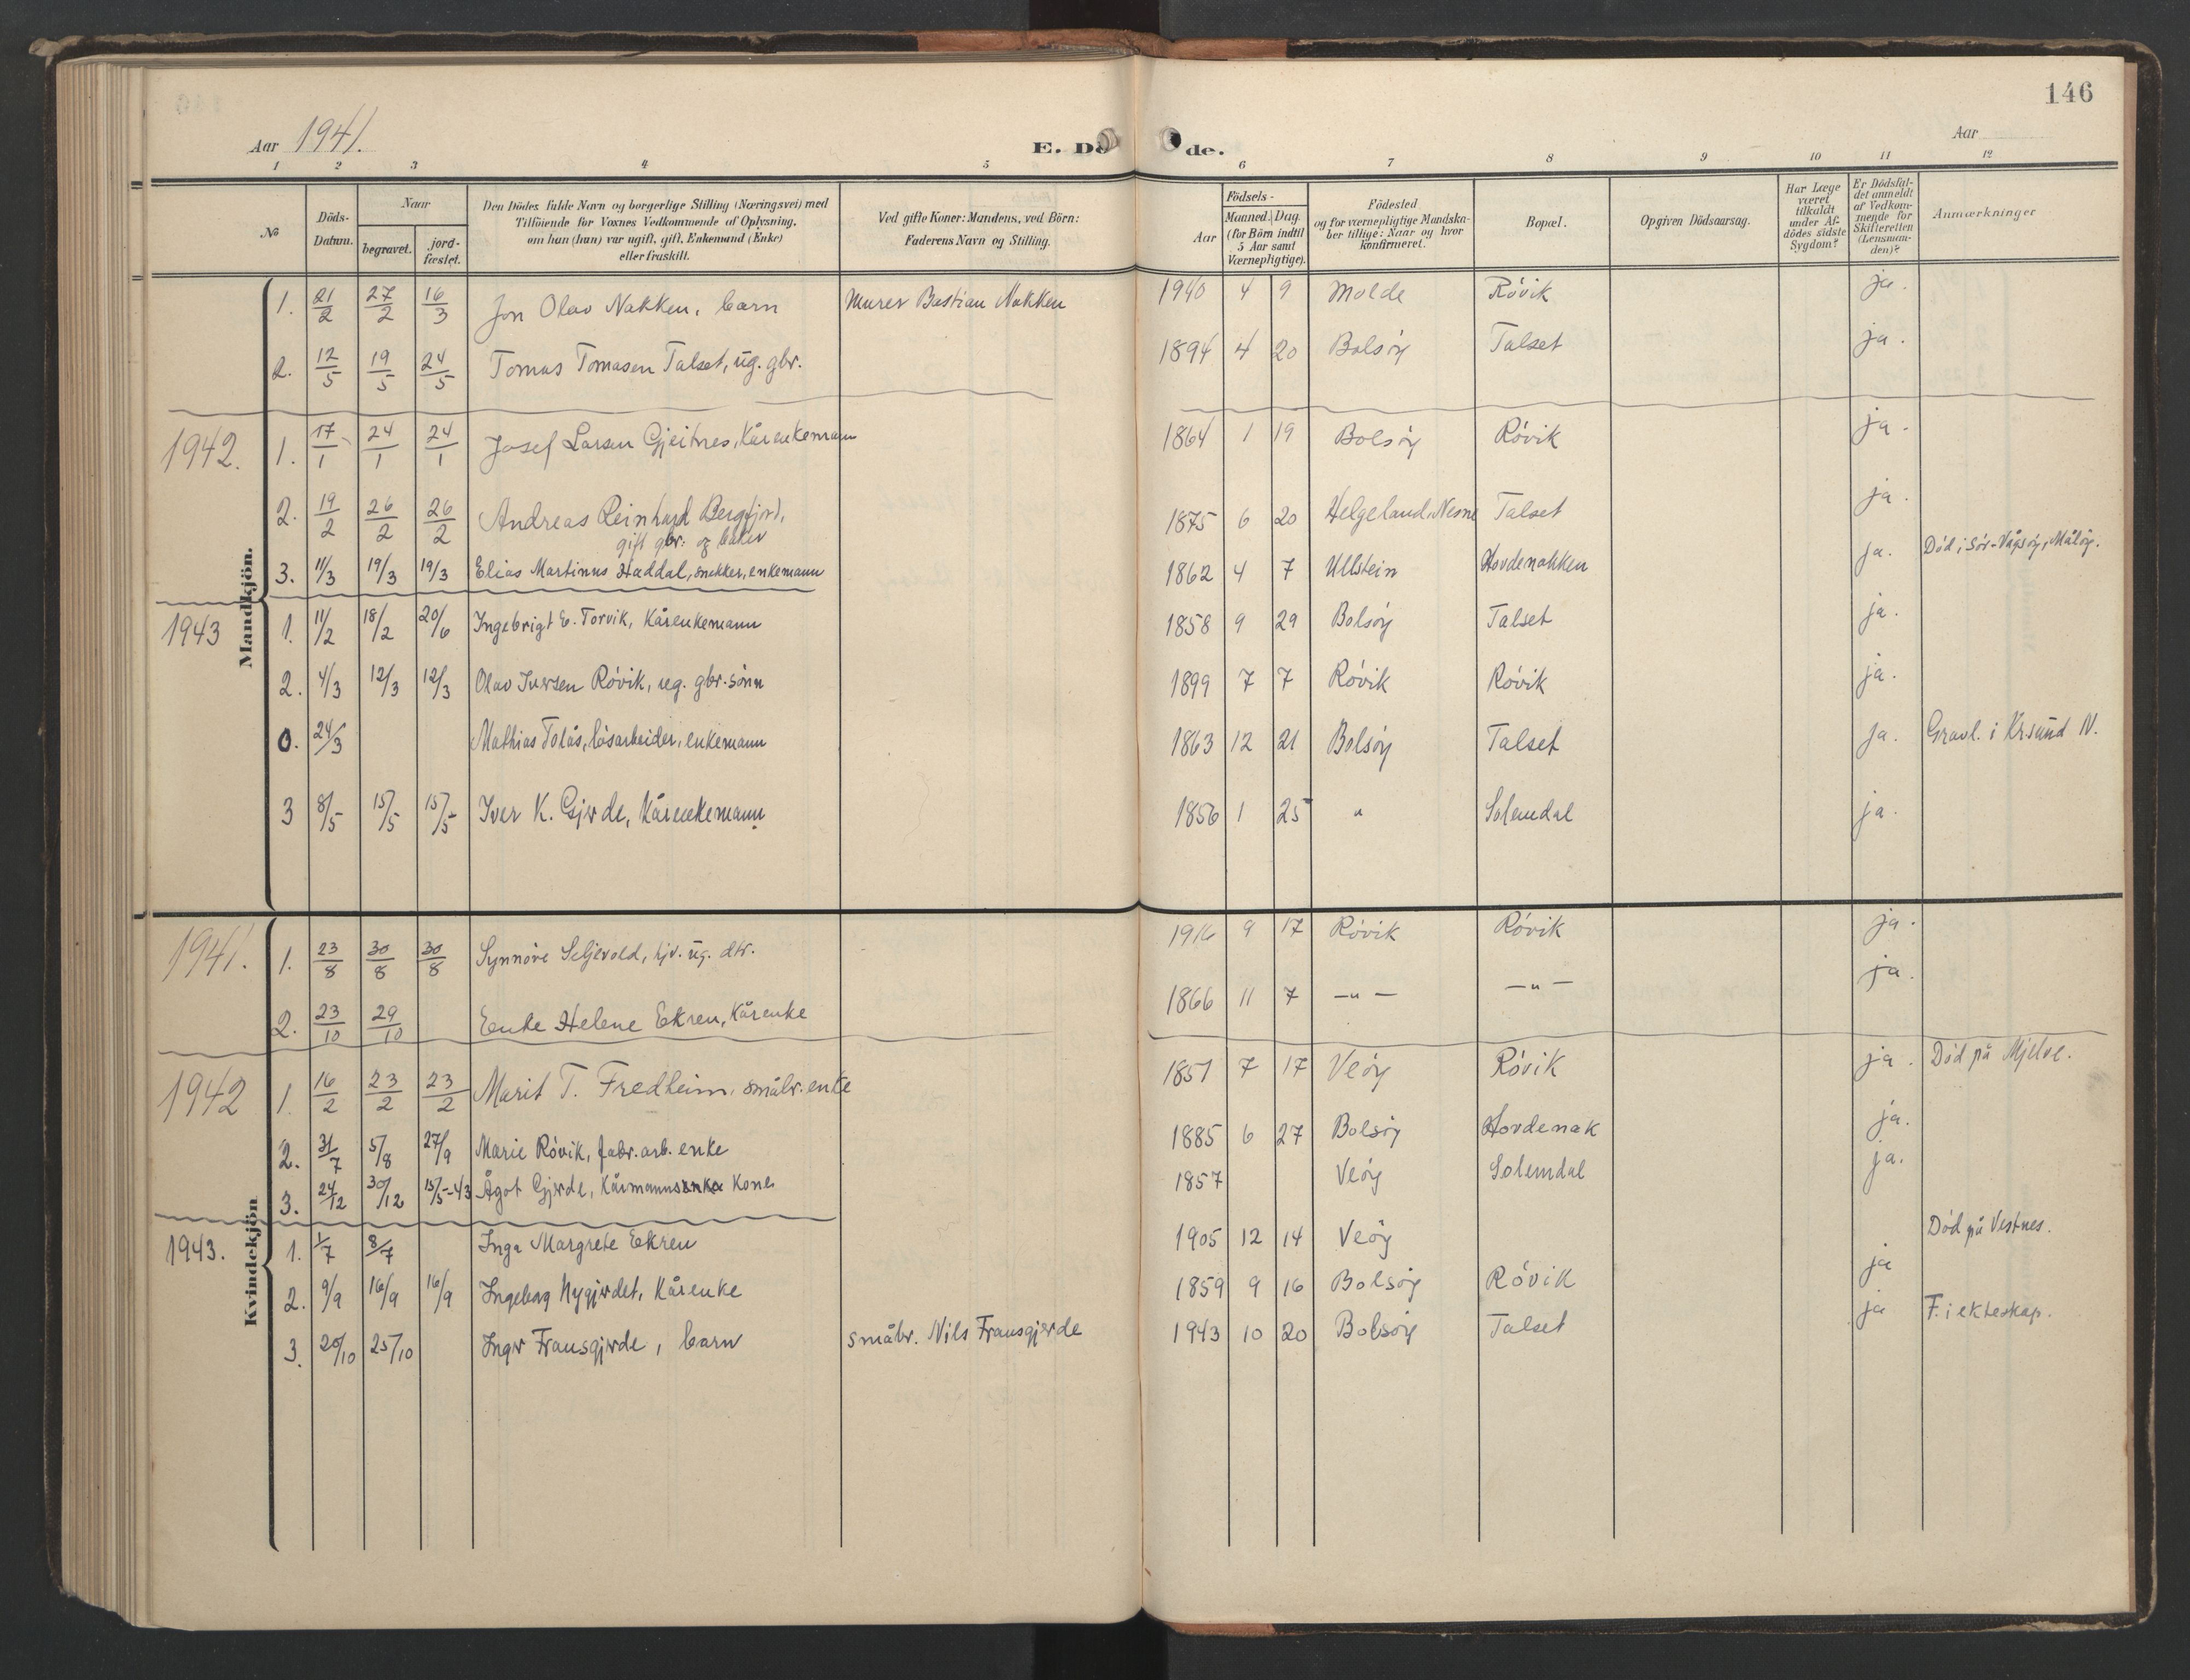 146
Aar 1941.
E. Döde.
Aar
1 2 3 4 5 6 7 8 9 10 11 12
No
Döds-Datum.
Naar
begravet.
jord-fæstet.
Den Dödes fulde Navn og borgerlige Stilling (Næringsvei) med
Tilföiende for Voxnes Vedkommende af Oplysning,
om han (hun) var ugift, gift, Enkemand (Enke)
eller fraskilt.
Ved gifte Koner: Mandens, ved Börn:
Faderens Navn og Stilling.
Aar
Födsels-
Maaned. Dag.
(for Börn indtil
5 Aar samt
Værnepligtige).
Födested
og for værnepligtige Mandska-
ber tillige: Naar og hvor
Konfirmeret.
Bopæl.
Opgiven Dödsaarsag.
Har Læge
været
tilkaldt
under Af-
dödes sidste
Sygdom?
Er Dödsfal-
det anmeldt
af Vedkom-
mende for
Skifteretten
(Lensman-
den)?
Anmærkninger
Mandkjön.
1. 21/2 27/2 16/3 Jon Olav Nakken, barn Murer Bastian Nakken 1940 4 9 Molde Róvik ja.
2. 12/5 19/5 24/5 Tomas Tomasen Talset, ug. gbr. 1894 4 20 Bolsöy Talset ja.
1942. 1. 17/1 24/1 24/1 Josef Larsen Gjeitnes, Kårenkemann 1864 1 19 Bolsöy Róvik ja.
2. 19/2 26/2 26/2 Andreas Reinhard Bergfjord, 1875 6 20 Helgeland, Nesne Talset ja.
gift gbr. og baker
3. 11/3 19/3 19/3 Elias Martinus Haddal, snekker, enkemann 1862 4 7 Ullstein Hovdenakken ja. Död i Sör-Vågsöy, Målöy.
1943 1. 11/2 18/2 20/6 Ingebrigt E. Torvik, Kårenkemann 1858 9 29 Bolsöy Talset ja.
2. 4/3 12/3 12/3 Olav Iversen Róvik, ug. gbr.sönn 1899 7 7 Róvik Róvik ja.
0. 24/3 Mathias Tolås, lösarbeider, enkemann 1863 12 21 Bolsöy Talset ja. Gravl. i Krsund N.
3 8/5 15/5 15/5 Iver K. Gjerde, Kårenkemann 1856 1 25 " Solemdal ja.
Kvindekjön
1941. 1. 23/8 30/8 30/8 Synnöve Seljevold, hjv. ug. dtr. 1916 9 17 Róvik Róvik ja.
2. 23/10 29/10 Enke Helene Ekren, Kårenke 1866 11 7 —"— —"— ja.
1942 1. 16/2 23/2 23/2 Marit T. Fredheim, småbr.enke 1851 7 17 Veöy Róvik ja. Död på Mjelve.
2. 31/7 5/8 27/9 Marie Róvik, fabr.arb. enke 1885 6 27 Bolsöy Hovdenak ja.
3. 24/12 30/12 15/5-43 Ågot Gjerde, Kårmannsenke Kone 1857 Veöy Solemdal ja.
1943. 1. 1/7 8/7 Inga Margrete Ekren 1905 12 14 Veöy Död på Vestnes.
2. 9/9 16/9 16/9 Ingeborg Nygjerdet, Kårenke 1859 9 16 Bolsöy Róvik ja
3. 20/10 25/10 Inger Fransgjerde, barn småbr. Nils Fransgjerde 1943 10 20 Bolsöy Talset ja F. i ekteskap.